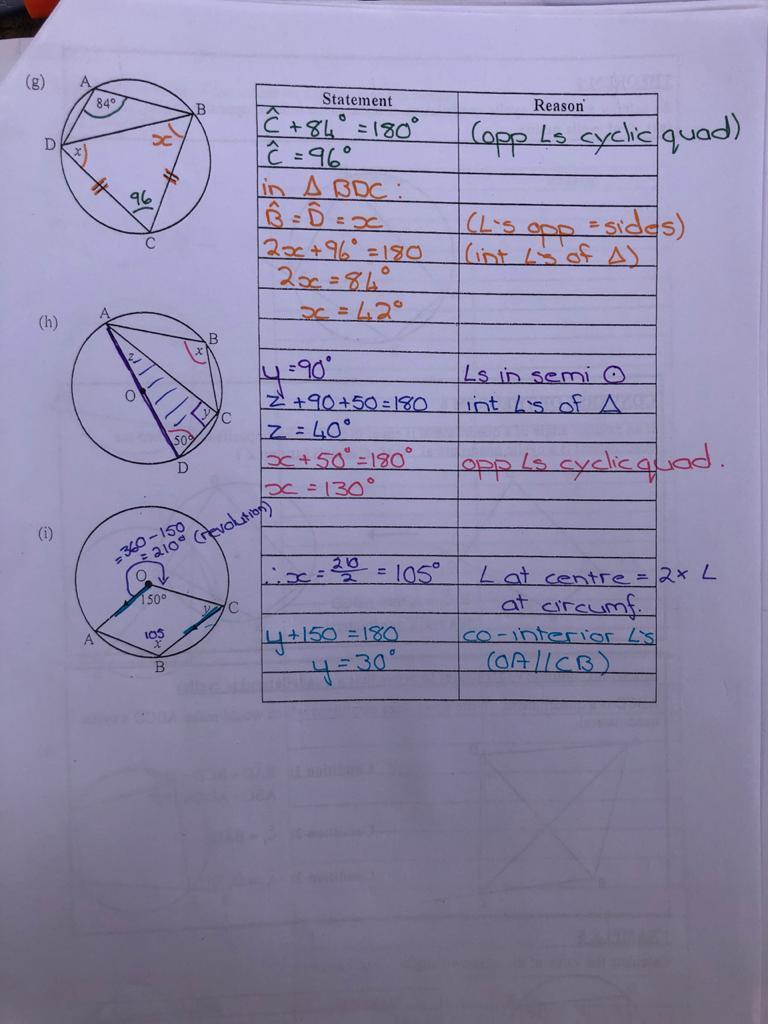 (g)
A
84°
B
D
x
x
96
C
Statement
Reason
Ĉ + 84° = 180°
(opp Ls cyclic quad)
Ĉ = 96°
in Δ BDC :
B̂ = D̂ = x
(L's opp = sides)
2x + 96° = 180
(int L's of Δ)
2x = 84°
x = 42°
(h)
A
B
z
x
O
y
C
50°
D
y = 90°
Ls in semi ⊙
z + 90 + 50 = 180
int L's of Δ
z = 40°
x + 50° = 180°
opp Ls cyclic quad.
x = 130°
(i)
= 360 - 150
= 210° (revolution)
O
150°
y
C
A
105
x
B
∴ x = 210/2 = 105°
L at centre = 2x L
at circumf.
y + 150 = 180
co-interior L's
y = 30°
(OA // CB)